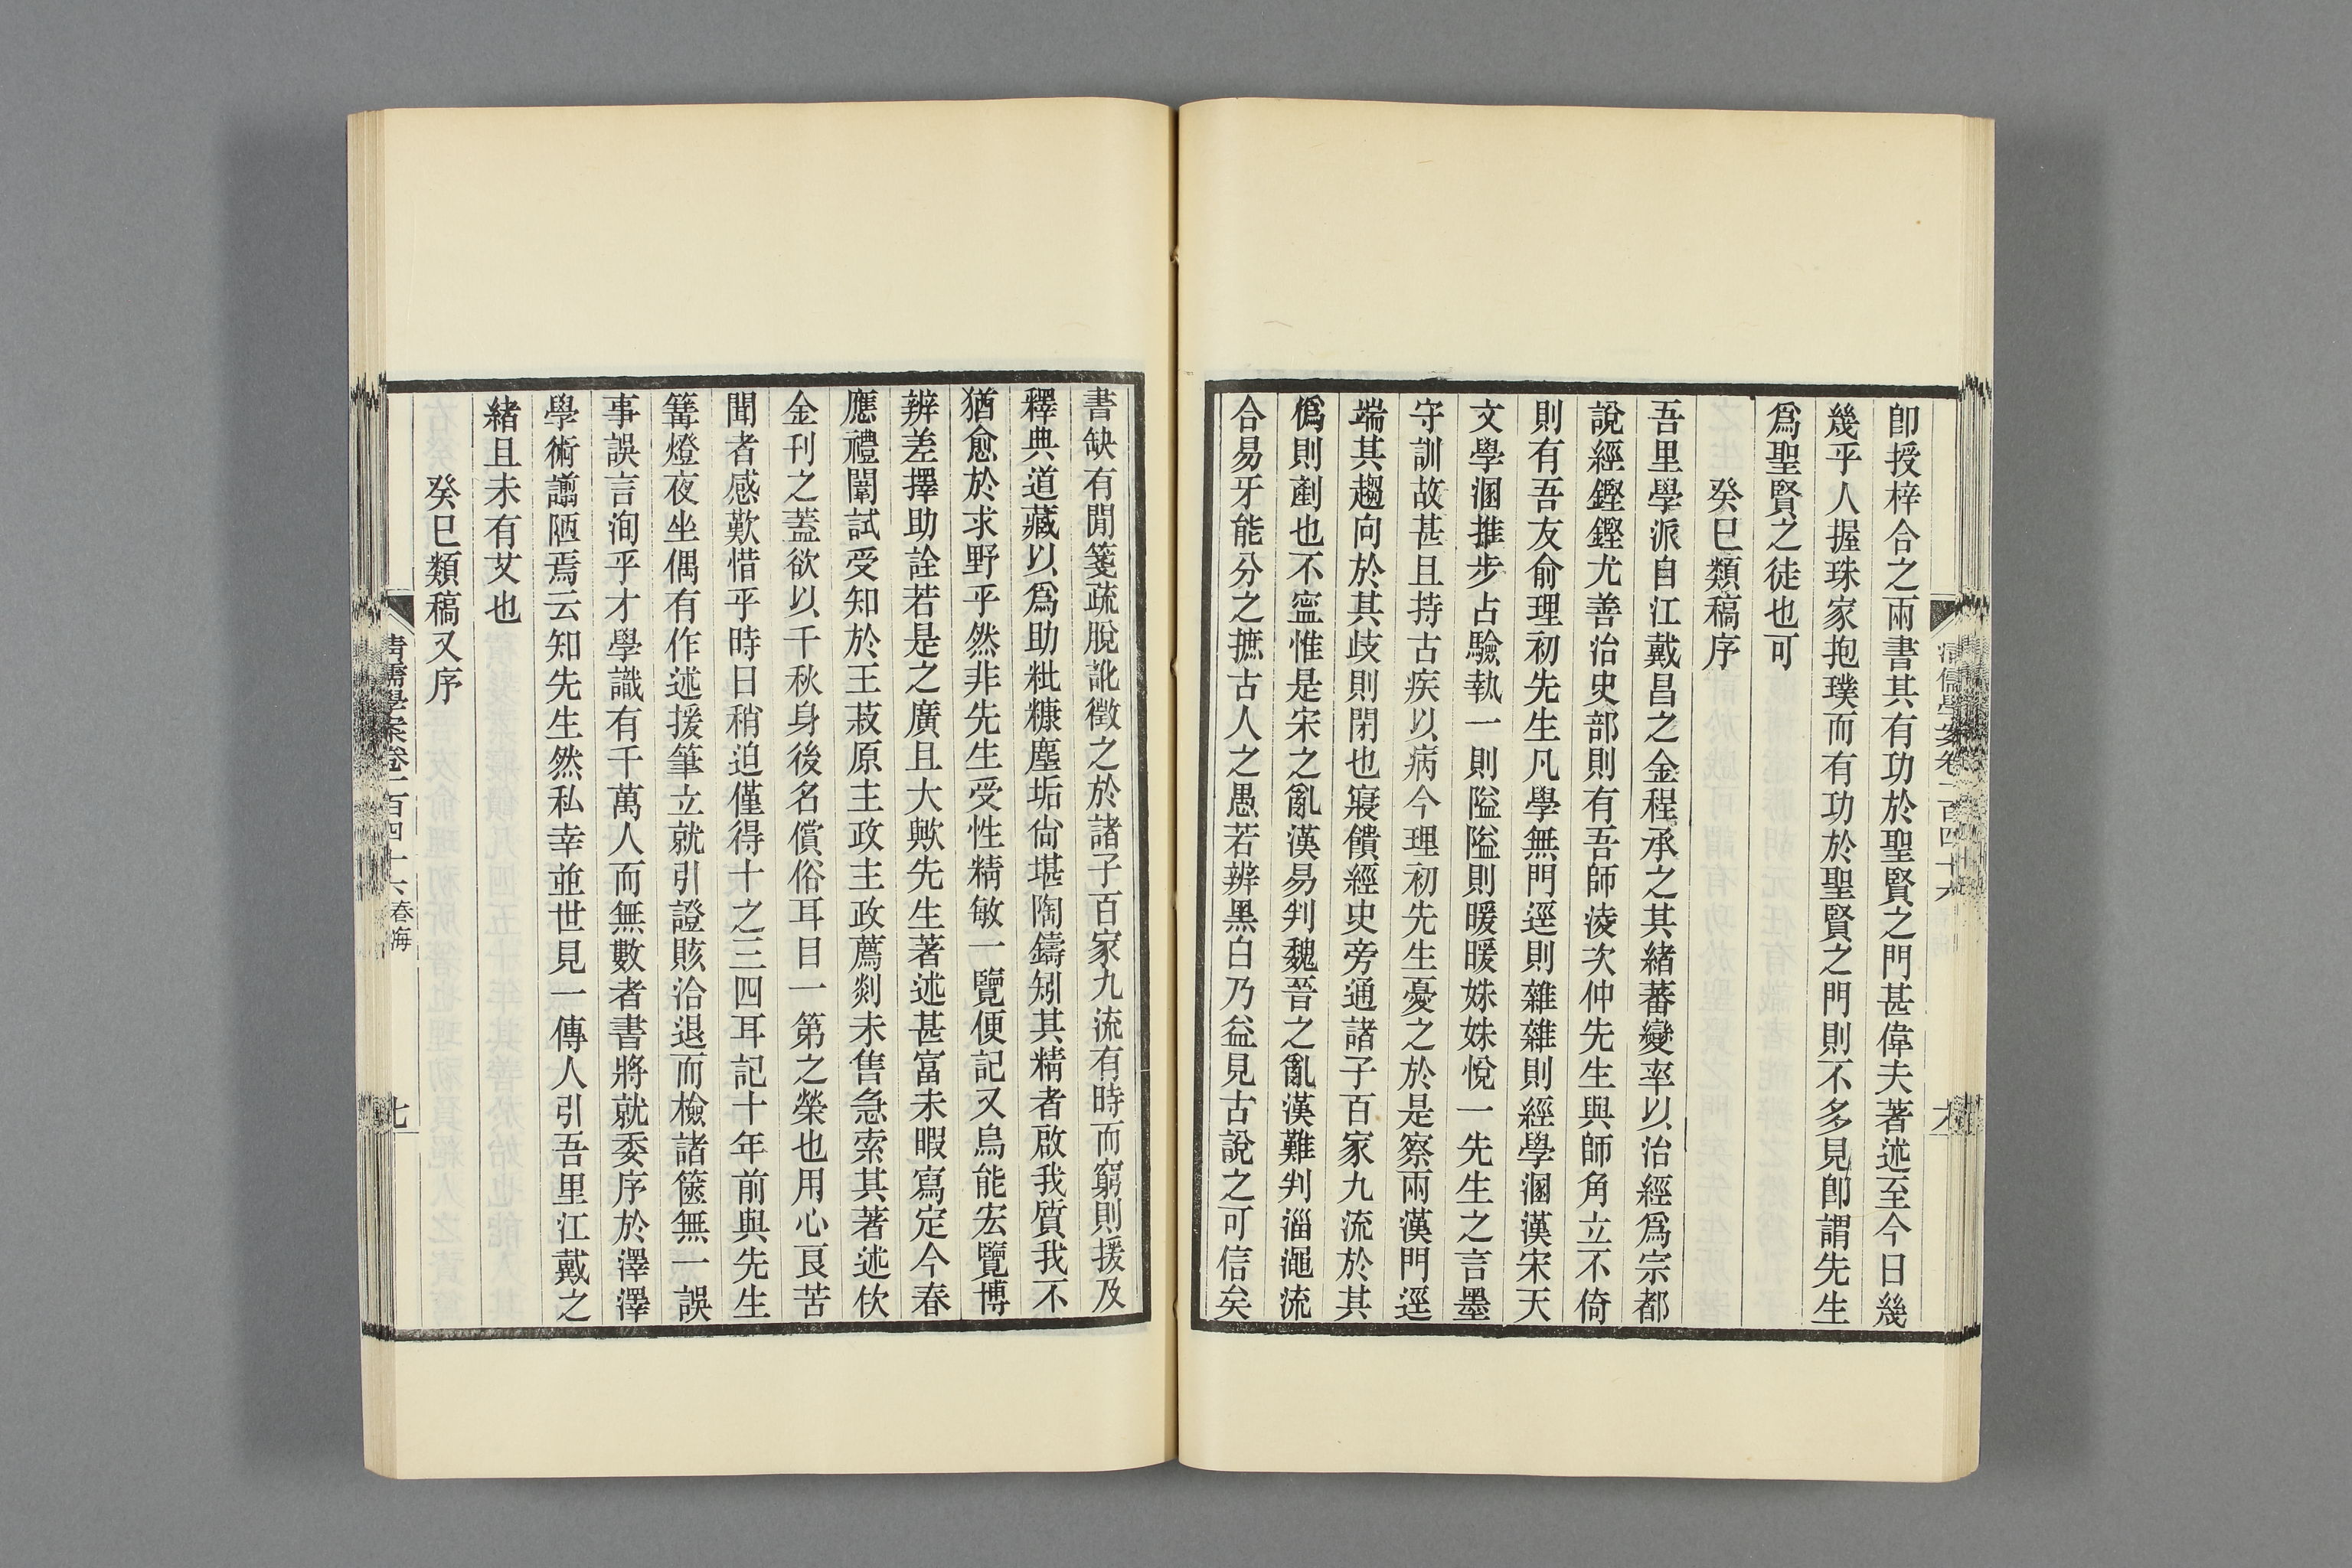 卽授梓合之兩書其有功於聖賢之門甚偉夫著述至今日幾
幾乎人握珠家抱璞而有功於聖賢之門則不多見卽謂先生
爲聖賢之徒也可
癸巳類稿序
吾里學派自江戴昌之金程承之其緒蕃變率以治經爲宗都
說經鏗鏗尤善治史部則有吾師淩次仲先生與師角立不倚
則有吾友俞理初先生凡學無門逕則雜雜則經學溷漢宋天
文學溷推步占驗執一則隘隘則暖暖姝姝悅一先生之言墨
守訓故甚且持古疾以病今理初先生憂之於是察兩漢門逕
端其趨向於其歧則閉也寢饋經史旁通諸子百家九流於其
僞則剷也不寍惟是宋之亂漢易判魏晉之亂漢難判淄澠流
合易牙能分之摭古人之愚若辨黑白乃益見古說之可信矣
書缺有閒箋疏脫訛徵之於諸子百家九流有時而窮則援及
釋典道藏以爲助粃糠塵垢尙堪陶鑄矧其精者啟我質我不
猶愈於求野乎然非先生受性精敏一覽便記又烏能宏覽博
辨差擇助詮若是之廣且大歟先生著述甚富未暇寫定今春
應禮闈試受知於王菽原主政主政薦剡未售急索其著述伙
金刊之蓋欲以千秋身後名償俗耳目一第之榮也用心良苦
聞者感歎惜乎時日稍迫僅得十之三四耳記十年前與先生
篝燈夜坐偶有作述援筆立就引證賅洽退而檢諸篋無一誤
事誤言洵乎才學識有千萬人而無數者書將就委序於澤澤
學術譾陋焉云知先生然私幸並世見一傳人引吾里江戴之
緒且未有艾也
癸巳類稿又序
清儒學案卷一百四十六 春海
七